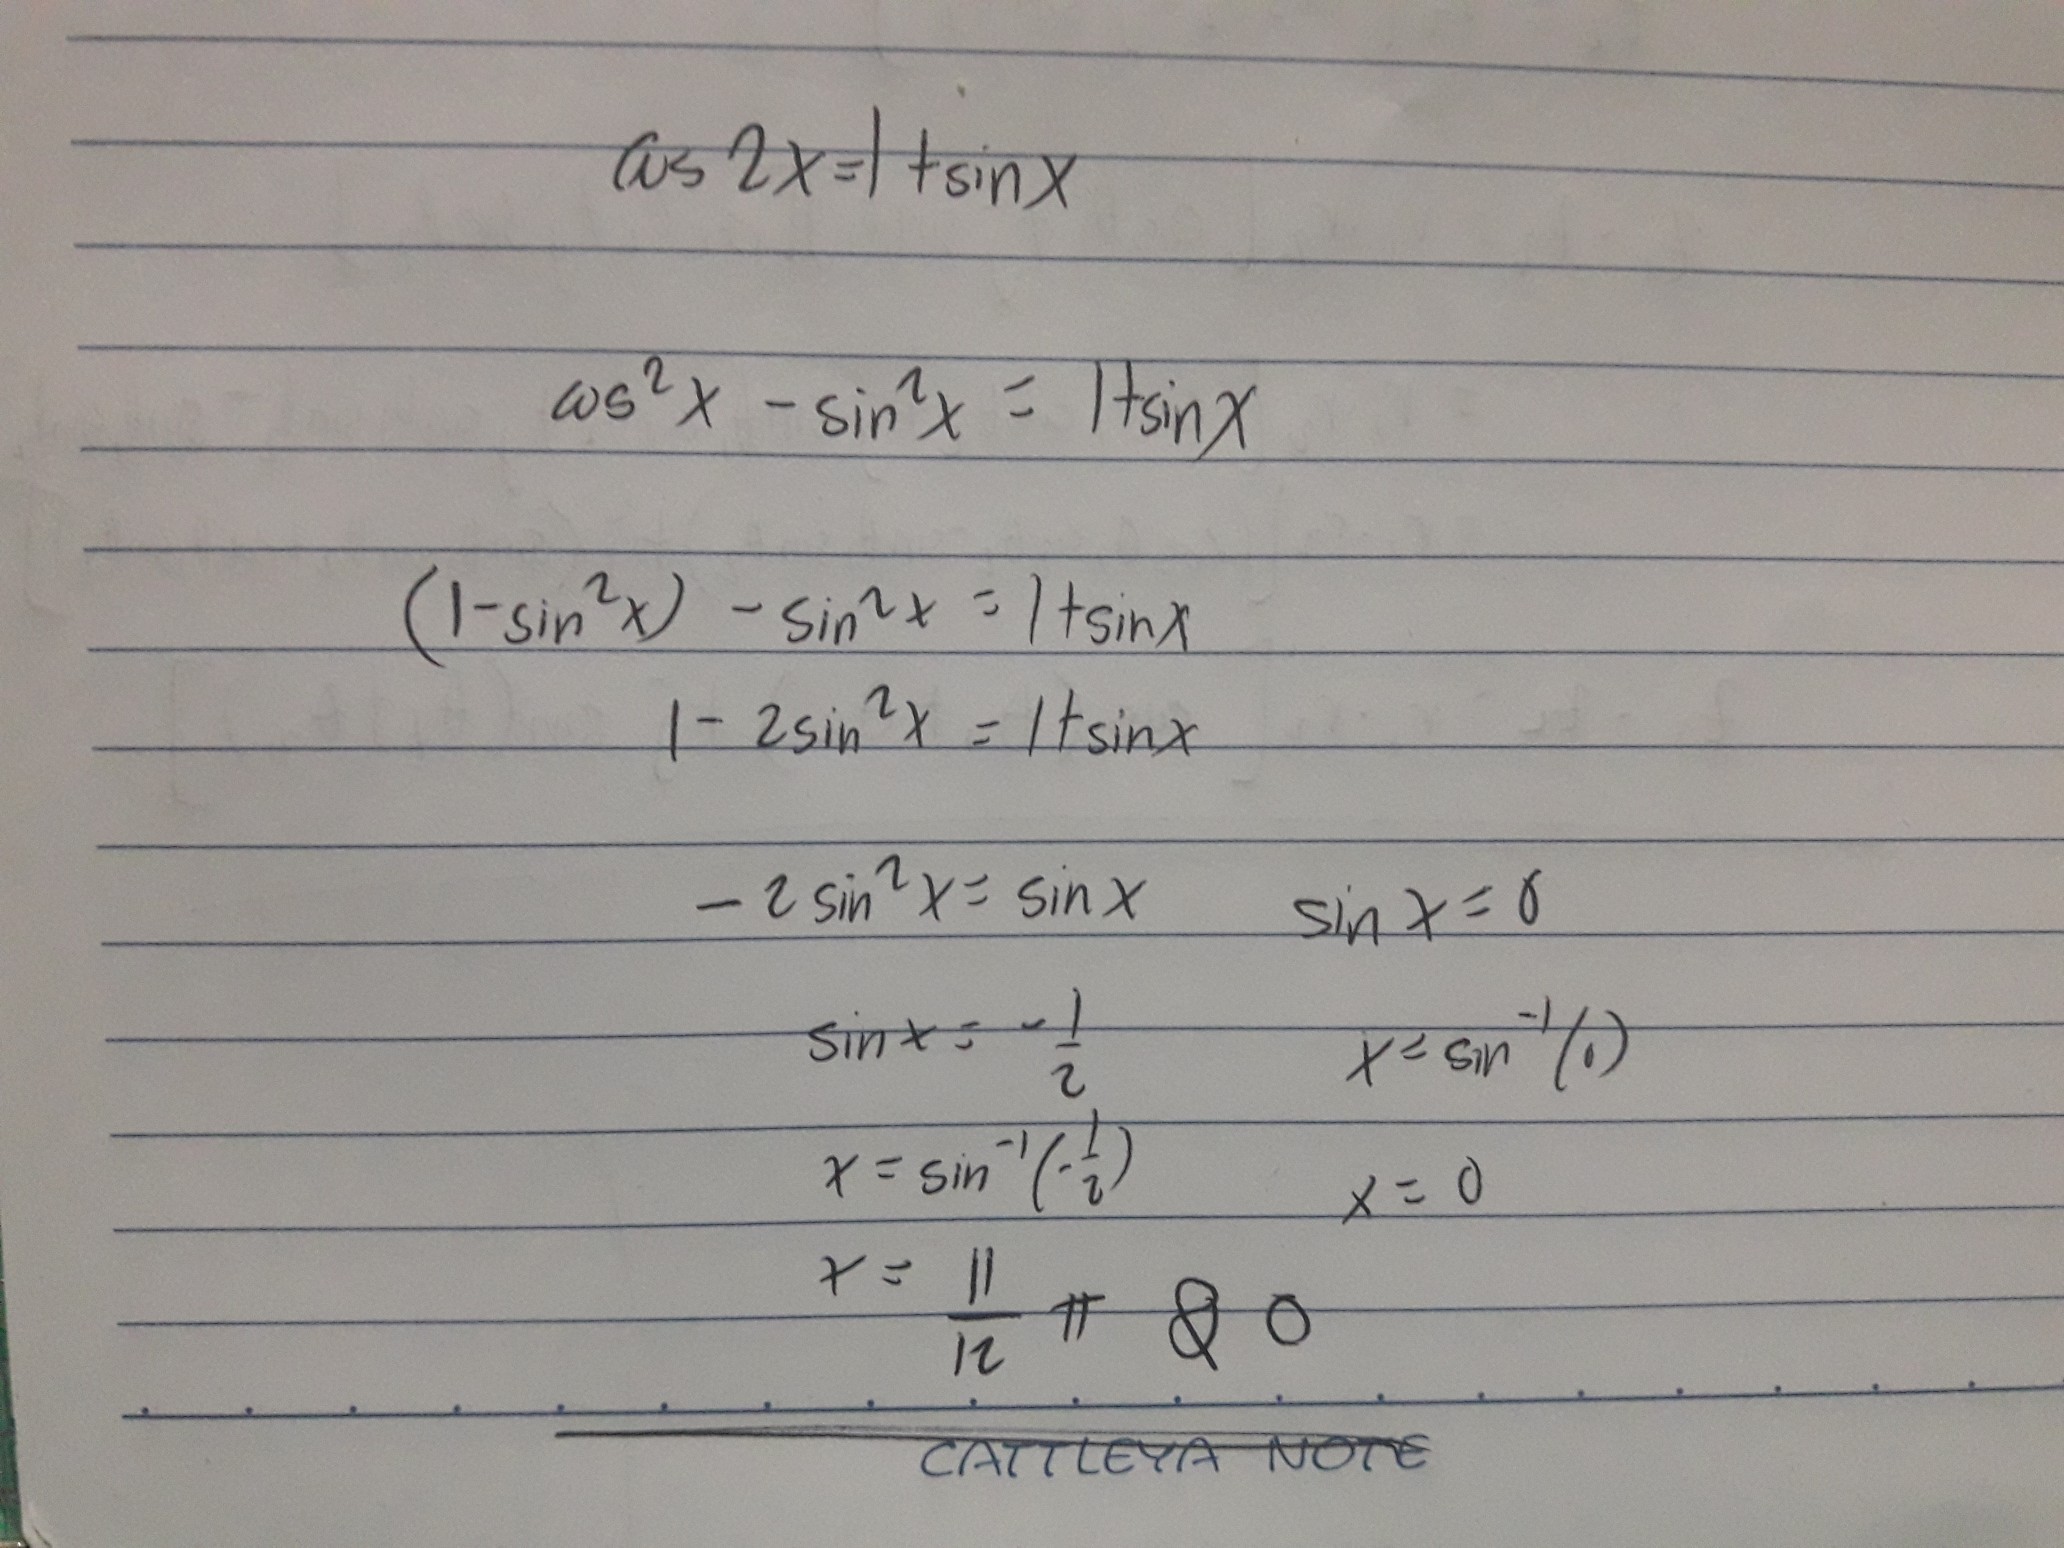 cos 2x=1+sinx
cos²x - sin²x = 1+sinx
(1-sin²x) - sin²x = 1+sinx
1 - 2sin²x = 1+sinx
-2 sin²x = sin x sin x = 0
sin x = -1/2 x = sin⁻¹(0)
x = sin⁻¹(-1/2) x = 0
x = 11/12 π & 0
CATTLEYA NOTE